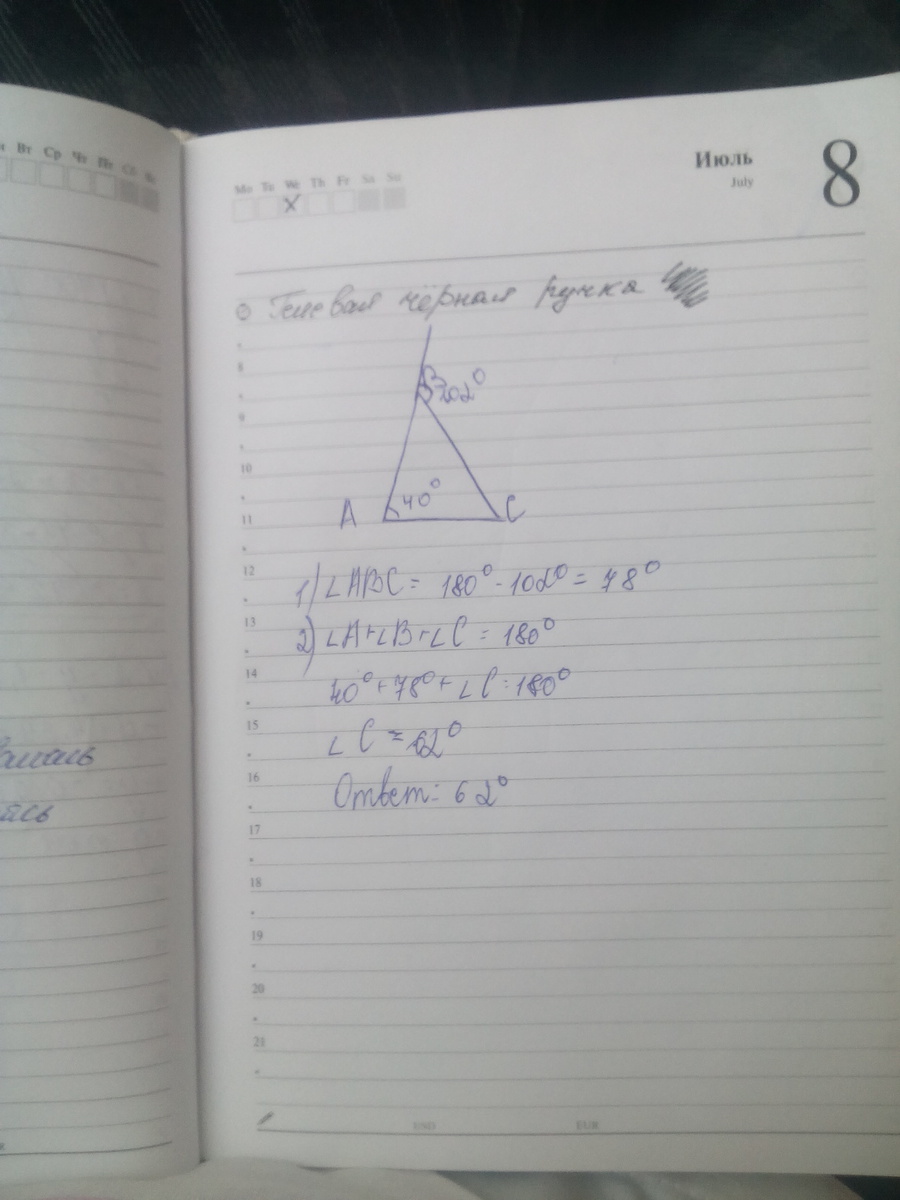 Вт Ср Чт Пт Сб Вс
Mo Tu We Th Fr Sa Su
Июль
July
8
Гелевая чёрная ручка
B
102°
40°
A
C
8
9
10
11
12
1) ∠ABC = 180° - 102° = 78°
13
2) ∠A+∠B+∠C = 180°
14
40°+78°+∠C=180°
15
∠C = 62°
16
Ответ: 62°
17
18
19
20
21
EUR